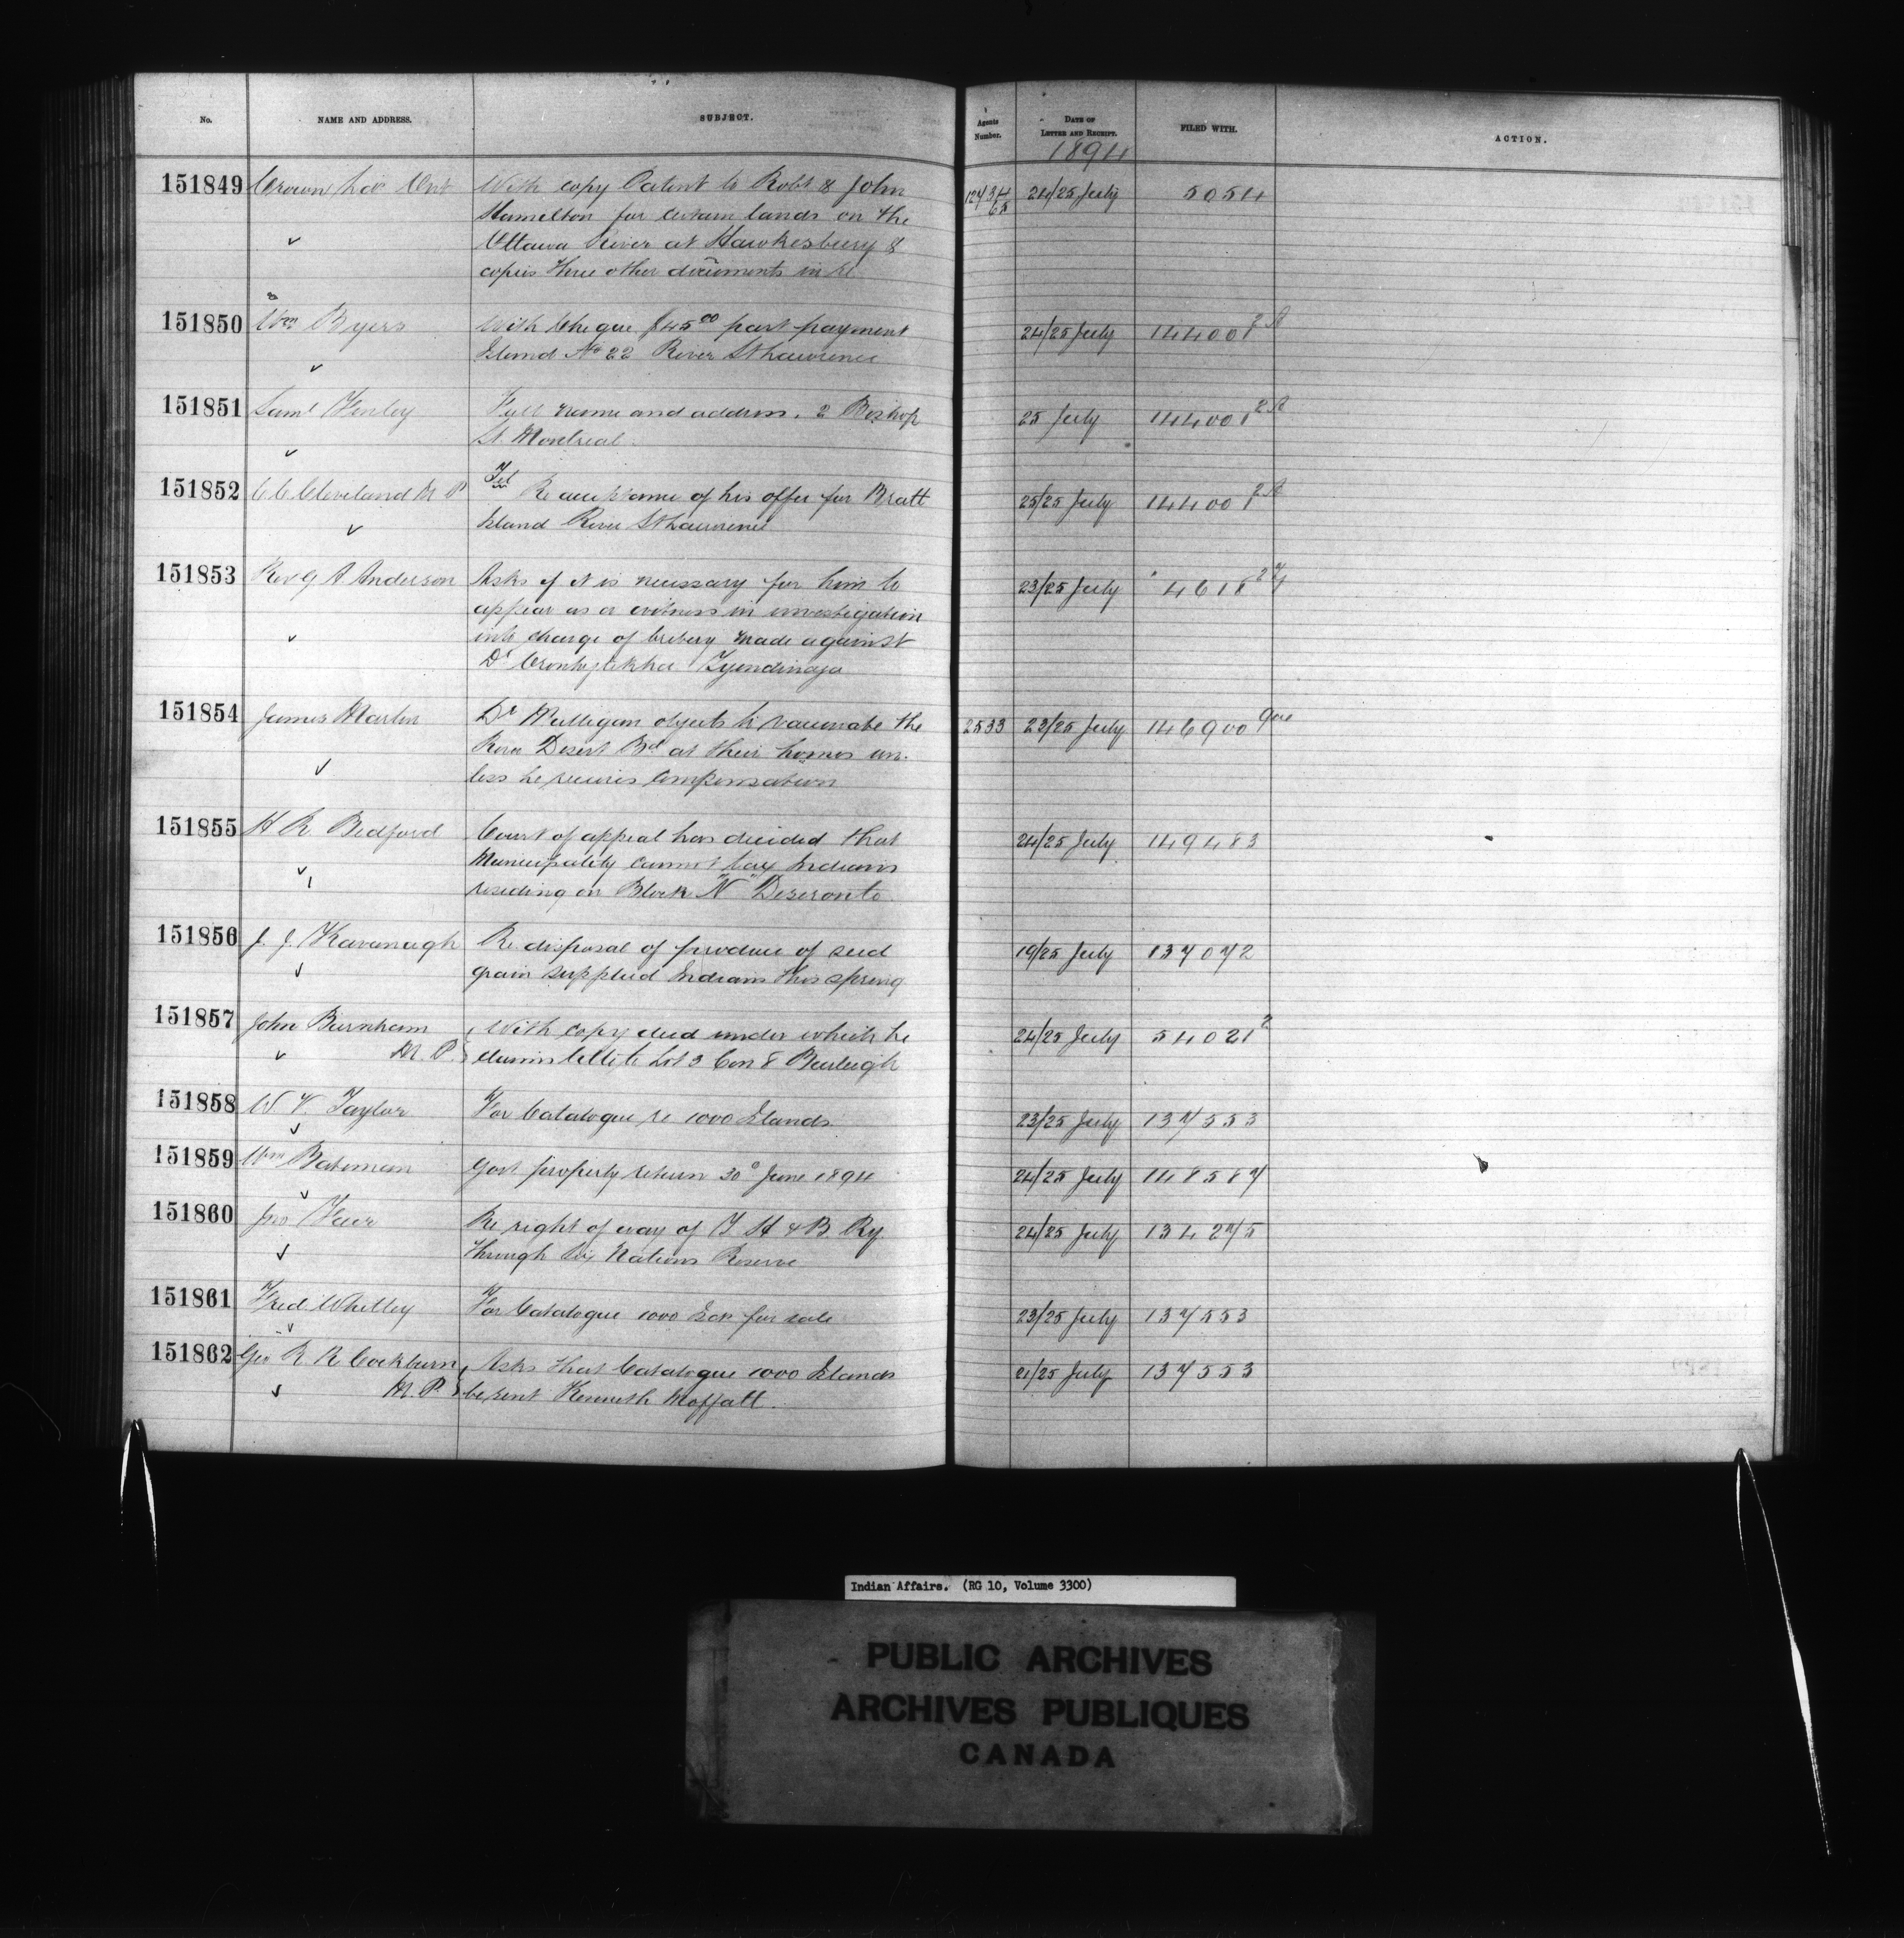 No. NAME AND ADDRESS. SUBJECT. Agents Number. DATE OF LETTER AND RECEIPT. FILED WITH. ACTION.
1894
151849 Crown Ont With copy Patent to Robt & John 24/25 July 5054
Hamilton for certain lands on the
Ottawa River at Hawkesbury &
copies three other documents in re
151850 Wm Byers With Cheque $45.00 part payment 24/25 July 144001 2A
Island No 22 River St Lawrence
151851 Saml Finley Full name and address. 2 Bishop 25 July 144001 2A
St. Montreal
151852 C C Cleveland M P Tel Re acceptance of his offer for Bratt 25/25 July 144001 2A
Island River St Lawrence
151853 Rev G A Anderson Asks if it is necessary for him to 23/25 July 4618
appear as a witness in investigation
into charge of bribery made against
Dr Oronhyatekha Tyendinaga
151854 James Martin Dr Mulligan objects to vaccinate the 2533 23/25 July 146900
River Desert Bd at their homes un-
less he receives compensation
151855 H R Bedford Court of appeal has decided that 24/25 July 149483
Municipality cannot tax Indians
residing on Block "N" Deseronto
151856 J. J. Kavanagh Re disposal of produce of seed 19/25 July 137072
grain supplied Indians this spring
151857 John Burnham With copy deed under which he 24/25 July 54021 2
M. P. claims title to Lot 3 Con 8 Burleigh
151858 W V. Taylor For Catalogue re 1000 Islands 23/25 July 137553
151859 Wm Bateman Govt property return 30° June 1894 24/25 July 148587
151860 Jno Re right of way of T H & B Ry. 24/25 July 134275
through Six Nations Reserve
151861 Fred Whitley For Catalogue 1000 Isds for sale 23/25 July 137553
151862 Geo R R Cockburn Asks that Catalogue 1000 Islands 21/25 July 137553
M. P. be sent Kenneth Moffatt.
Indian Affairs. (RG 10, Volume 3300)
PUBLIC ARCHIVES
ARCHIVES PUBLIQUES
CANADA